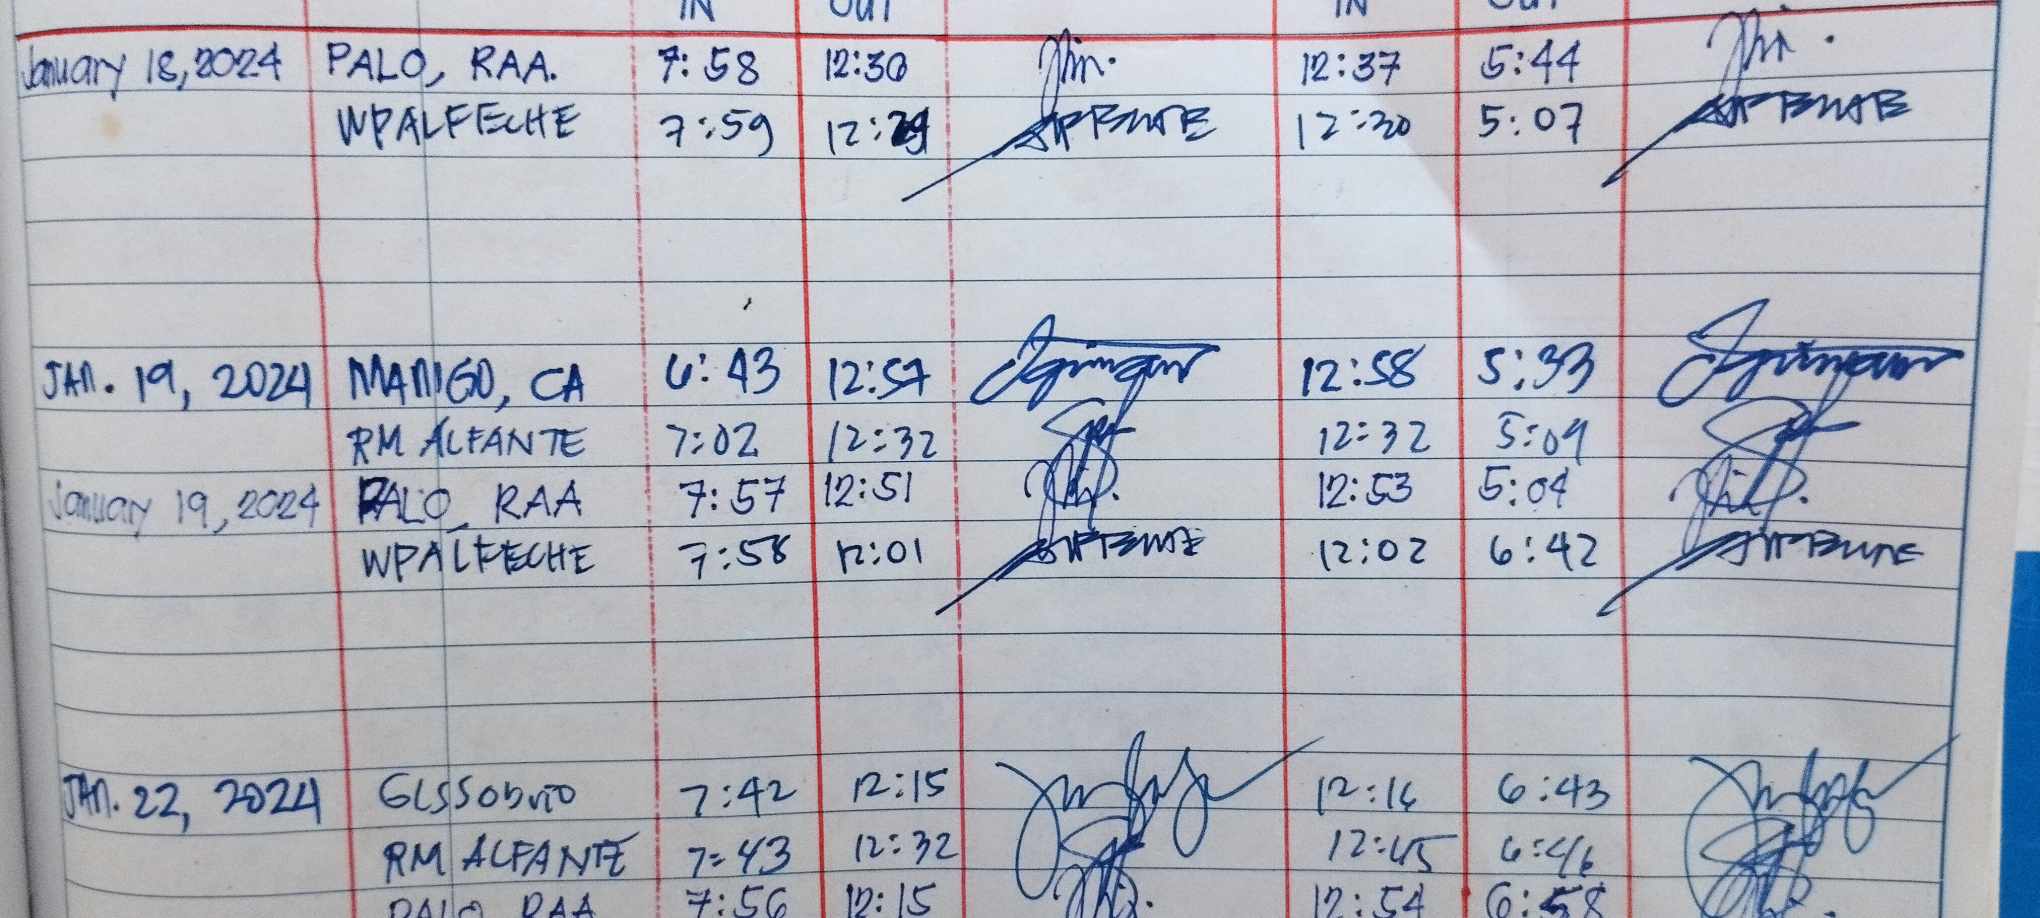 IN OUT IN OUT
January 18, 2024 PALO, RAA. 7:58 12:30 12:37 5:44
WPALFECHE 7:59 12:29 12:30 5:07
JAN. 19, 2024 MANIGO, CA 6:43 12:57 12:58 5:33
RM ALFANTE 7:02 12:32 12:32 5:09
January 19, 2024 PALO, RAA 7:57 12:51 12:53 5:04
WPALFECHE 7:58 12:01 12:02 6:42
JAN. 22, 2024 7:42 12:15 12:16 6:43
RM ALFANTE 7:43 12:32 12:45 6:46
PALO RAA 7:56 12:15 12:54 6:58